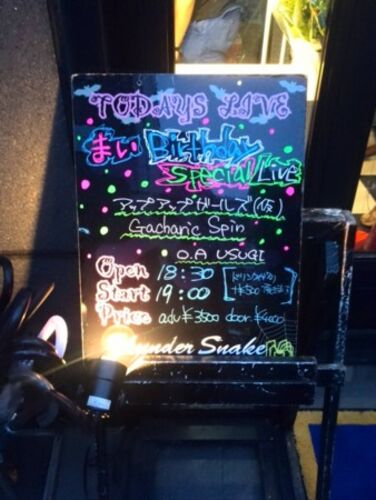 TODAYS LIVE
まい Birthday
Special Live
アップアップガールズ(仮)
Gacharic Spin
O.A USUGI
Open 18:30
Start 19:00
Price adv ¥3500 door ¥4000
Thunder Snake